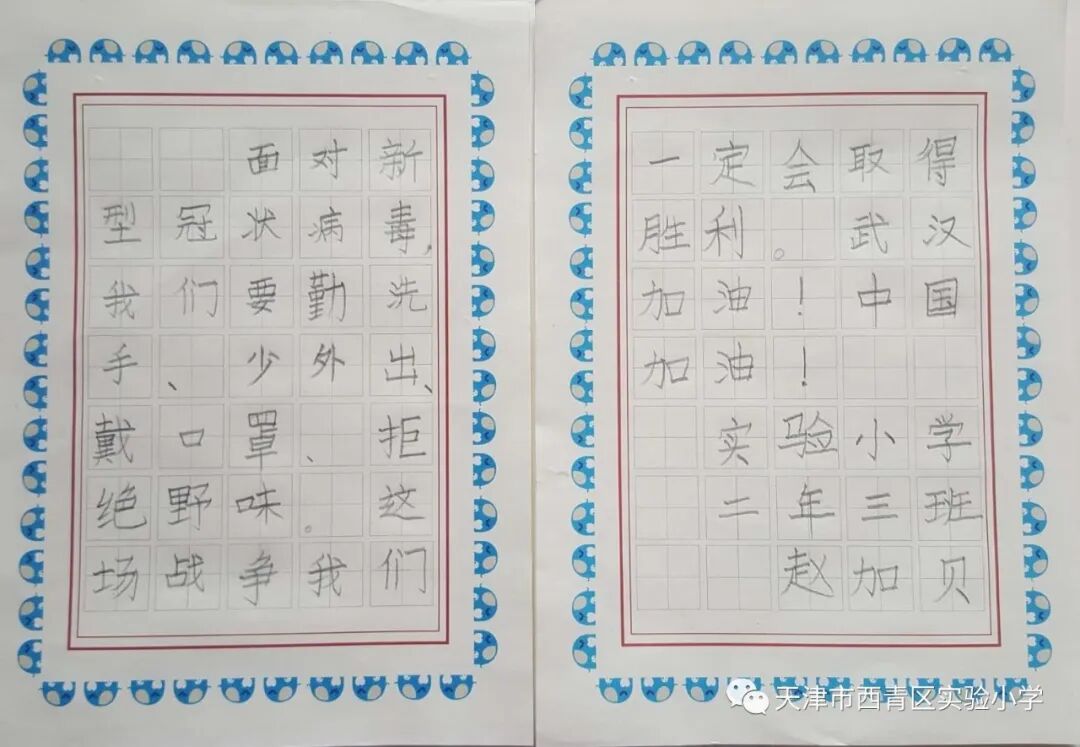 面对新
型冠状病毒，
我们要勤洗
手、少外出、
戴口罩、拒
绝野味。这
场战争我们
一定会取得
胜利。武汉
加油！中国
加油！
实验小学
二年三班
赵加贝
天津市西青区实验小学